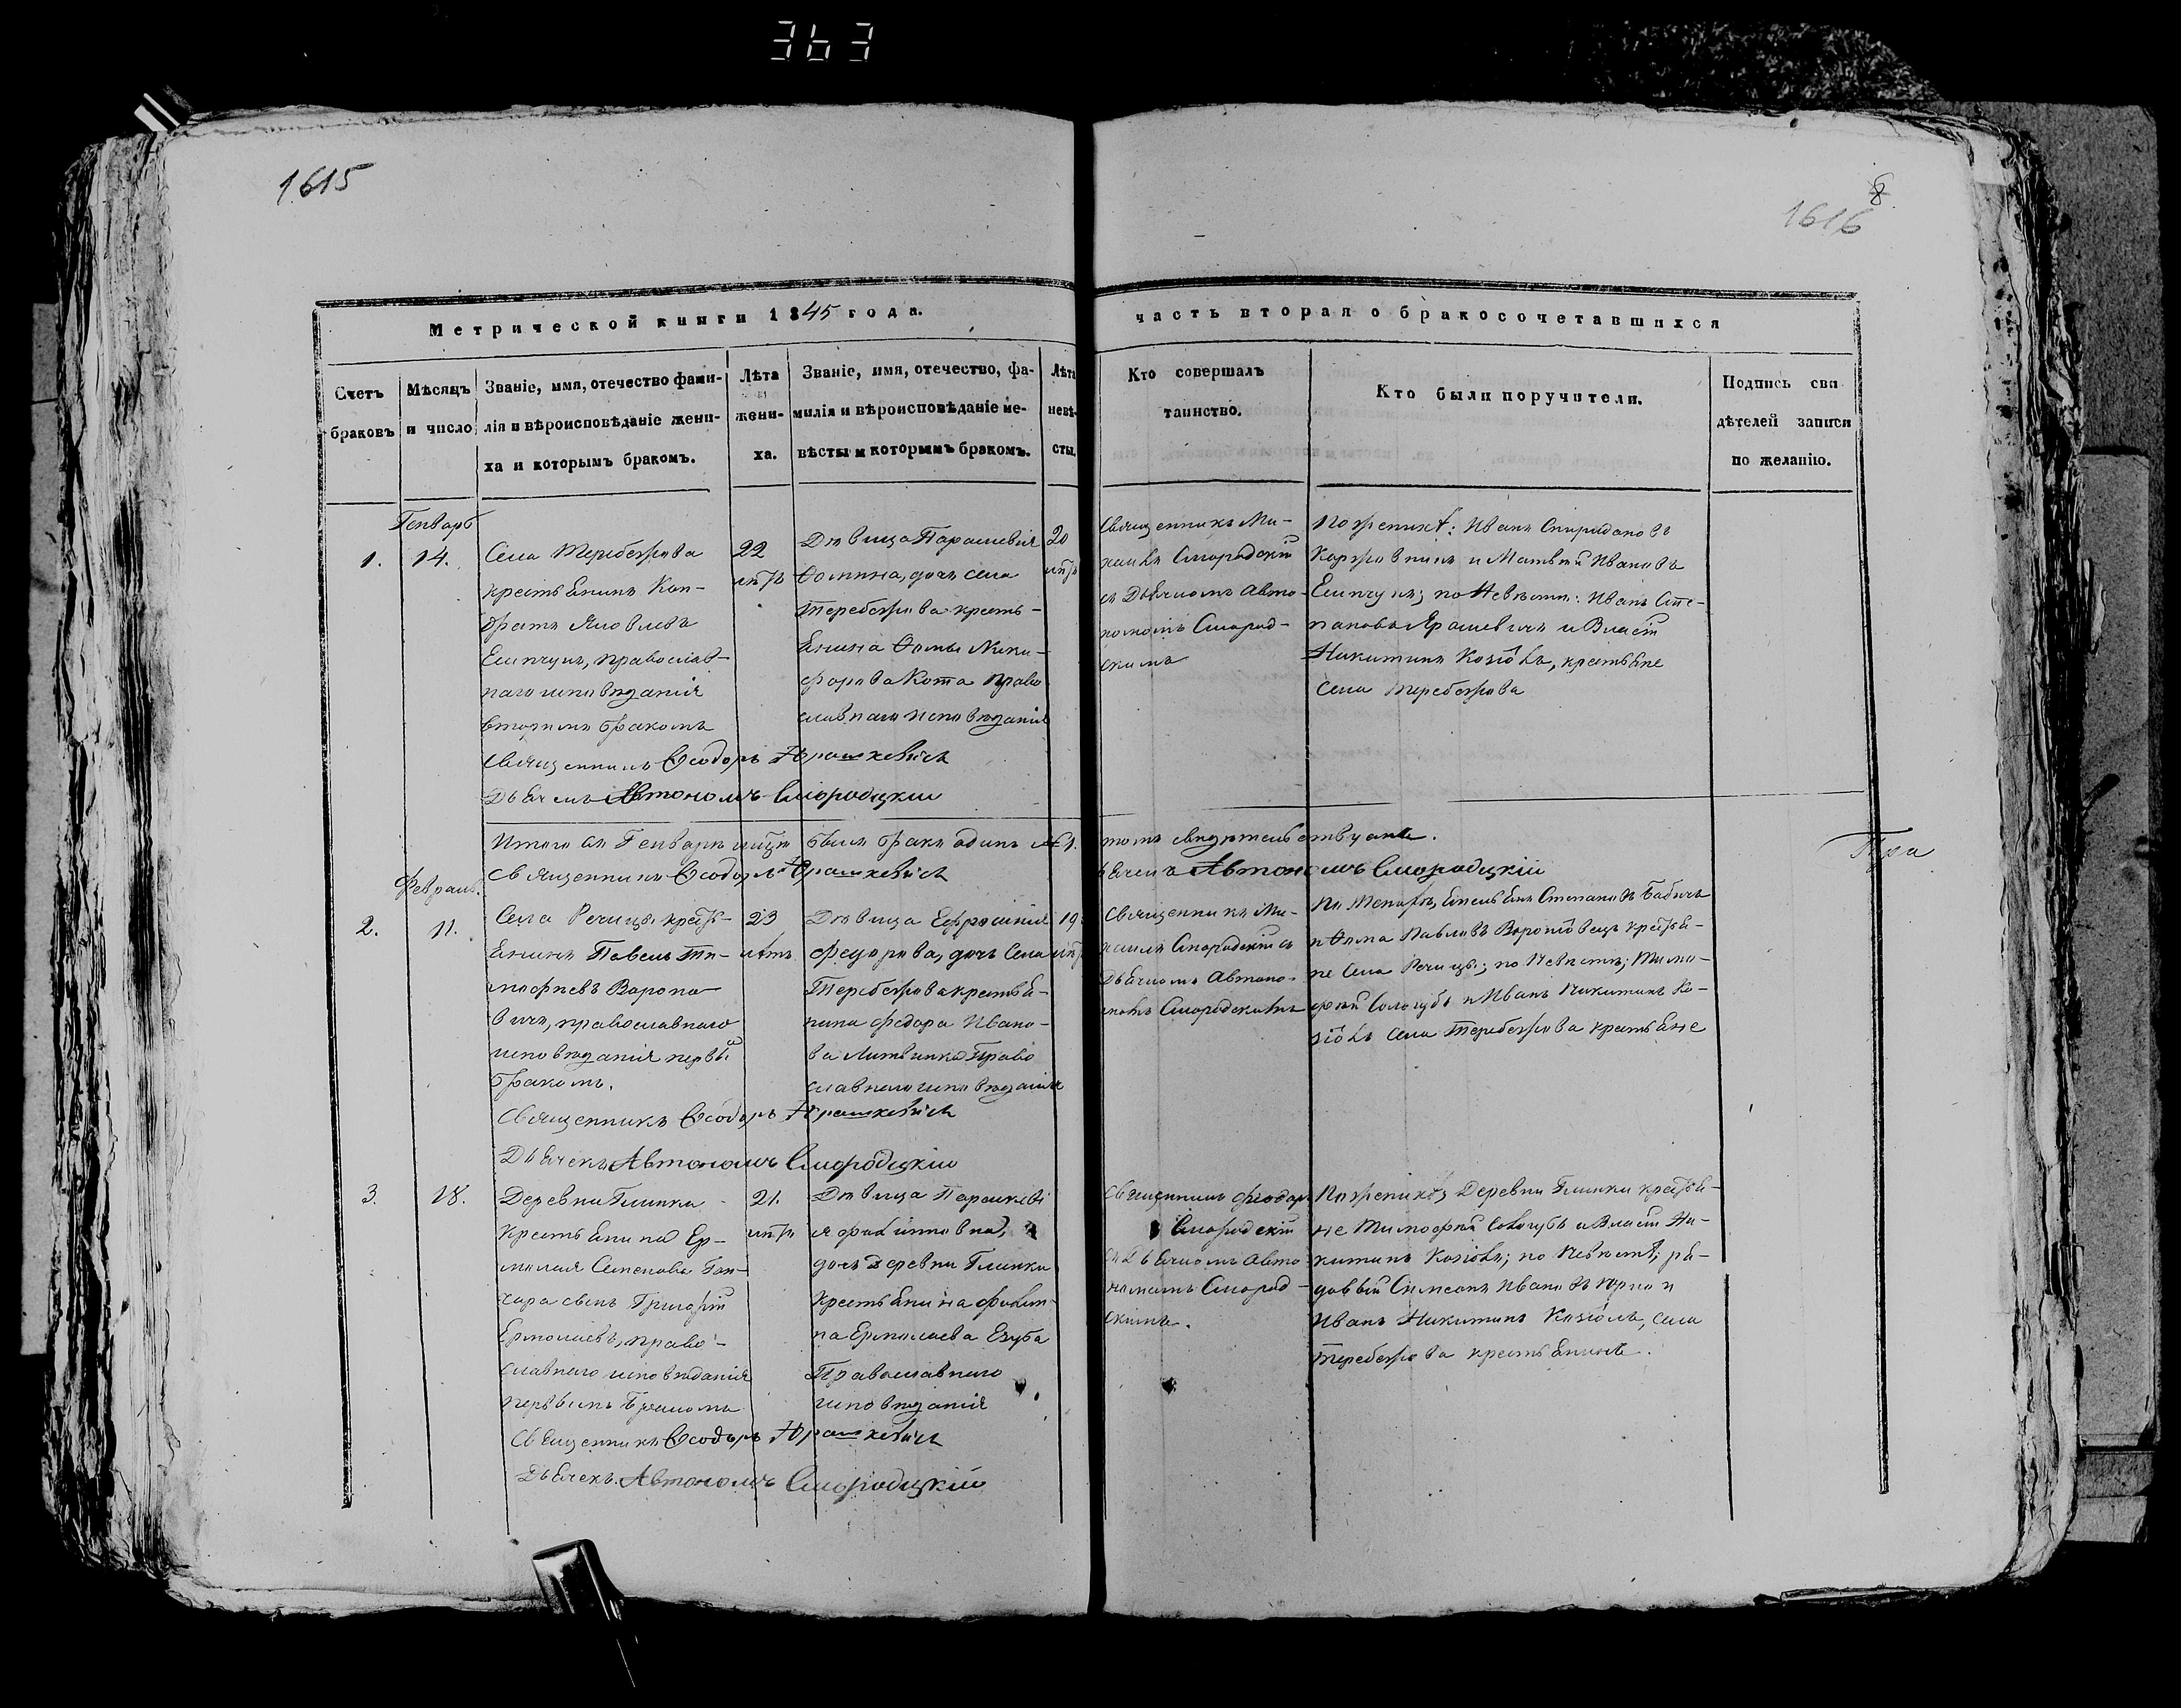 363
1615
8
1616
Метрической книги 1845 года.
часть вторая о бракосочетавшихся
Счетъ
браковъ
Мѣсяцъ
и число
Званіе, имя, отечество фами-
лія и вѣроисповѣданіе жени-
ха и которымъ бракомъ.
Лѣта
жени-
ха.
Званіе, имя, отечество, фа-
милія и вѣроисповѣданіе не-
вѣсты и которымъ бракомъ.
Лѣта
невѣ-
сты.
Кто совершалъ
таинство.
Кто были поручители.
Подпись сви
дѣтелей записи
по желанію.
Генварь
1.
14.
Села Теребежова
крестьянинъ Кон-
дратъ Яковлевъ
православ-
наго исповѣданія
вторымъ бракомъ
22
лѣтъ
Дѣвица Параскевія
Фомина, дочь села
Теребежова кресть-
янина Фомы Ники-
форова Кота право
славнаго исповѣданія
20
лѣтъ
Священникъ Ми-
хаилъ Смородскій
съ Дьячкомъ Авто-
номомъ Смород-
скимъ
По женихѣ: Иванъ Спиридоновъ
Коржовникъ и Матвѣй Ивановъ
по Невѣстѣ: Иванъ Сте-
пановъ Ярашевичъ и Власій
Никитинъ Козіолъ, крестьяне
села Теребежова
Священникъ Ѳеодоръ Юрашкевичъ
Дьячекъ Автономъ Смородскій
Итого въ Генварѣ мѣсяцѣ былъ бракъ одинъ №1.
томъ свидѣтельствуемъ.
Священникъ Ѳеодоръ Юрашкевичъ
Дьячекъ Автономъ Смородскій
Пра
Февраль.
2.
11.
Села Речицы кресть-
янинъ Павелъ Ти-
мофѣевъ Вороно-
вичъ, православнаго
исповѣданія первы
бракомъ.
23
лѣтъ
Дѣвица Ефросинія
Федорова, дочь Села
Теребежова крестья-
нина Федора Ивано-
ва Литвинка Право
славнаго исповѣданія
19
лѣтъ
Священникъ Ми-
хаилъ Смородскій съ
Дьячкомъ Автоно-
момъ Смородскимъ
По Женихѣ, Степановъ Бабичъ
и Фома Павловъ крестья-
не Села Речицы; по Невѣстѣ; Тимо-
фѣй Сологубъ и Иванъ Никитинъ Ко-
зіолъ села Теребежова крестьяне
Священникъ Ѳеодоръ Юрашкевичъ
Дьячекъ Автономъ Смородскій
3.
18.
Деревни Глинки
крестьянина Ер-
молая Семенова Гон-
чара сынъ Григорій
Ермолаевъ, право-
славнаго исповѣданія
первымъ бракомъ
21.
лѣтъ
Дѣвица Параскеві
я
дочь Деревни Глинки
крестьянина
Ермолаева Езуба
Православнаго
исповѣданія
Священникъ Феодоръ
Смородскій
съ Дьячкомъ Авто
номомъ Смород-
скимъ.
По женихѣ, Деревни Глинки крестья-
не Тимофѣй Сологубъ и Власій Ни-
китинъ Козіолъ; по Невѣстѣ; ря-
довый Симеонъ Ивановъ и
Иванъ Никитинъ Козіолъ, села
Теребежова крестьянинъ.
Священникъ Ѳеодоръ Юрашкевичъ
Дьячекъ. Автономъ Смородскій